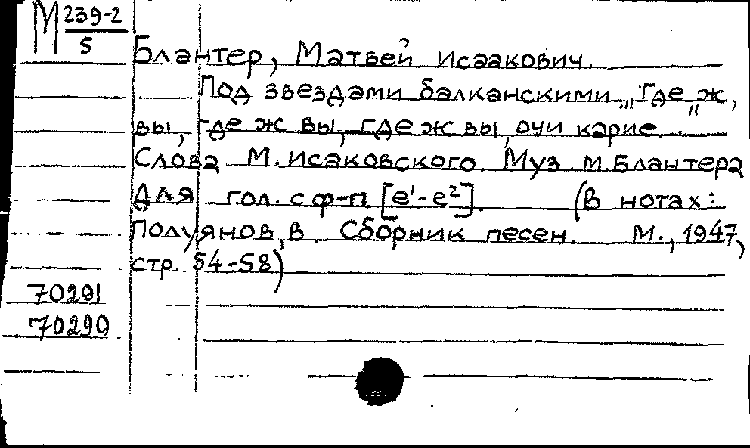 М 239-2
5
Блантер, Матвей Исаакович.
Под звездами балканскими „Где ж,
вы, где ж вы, где ж вы, очи карие"
Слова М. Исаковского. Муз М. Блантера
Для гол. с ф-п [e¹-e²]. (В нотах:
Полуянов, В Сборник песен. М., 1947,
стр. 54-58)
70291
70290